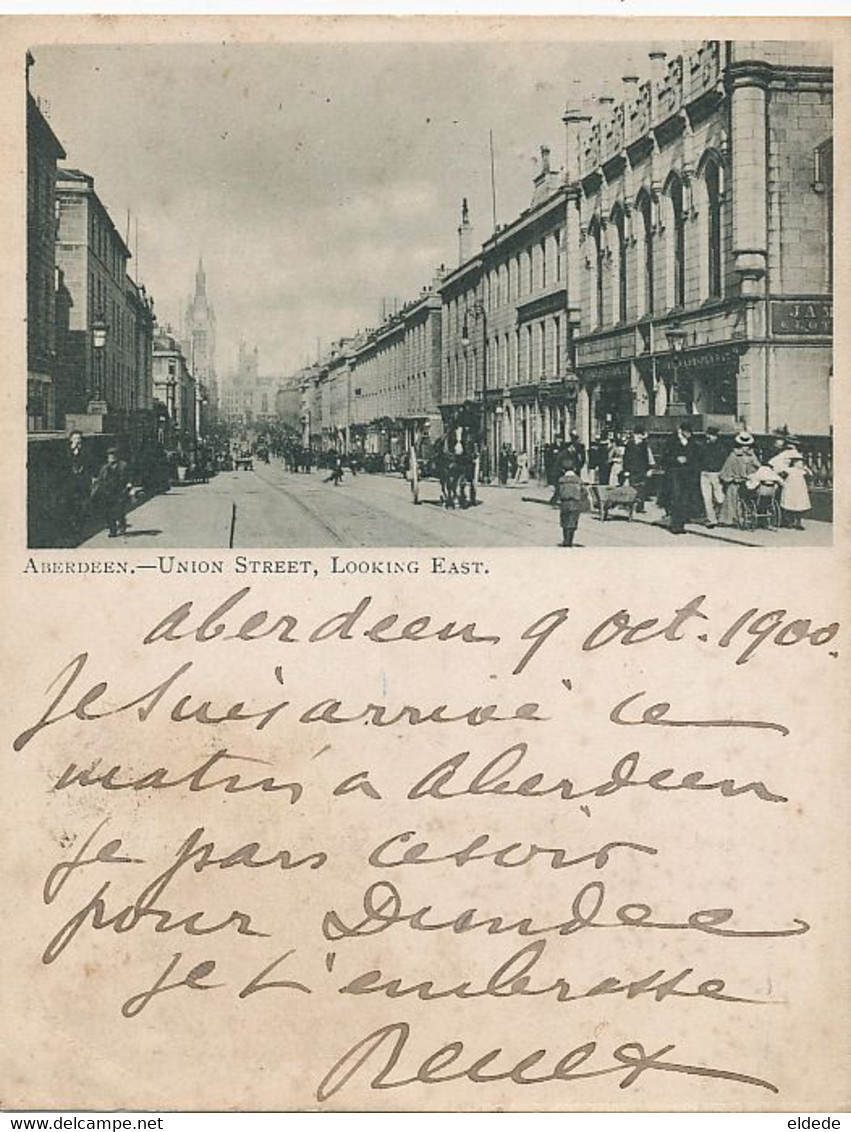 JAM
Aberdeen.—Union Street, Looking East.
Aberdeen 9 oct. 1900.
Je suis arrivé ce
matin a Aberdeen
je pars ce soir
pour Dundee
je t'embrasse
delcampe.net
eldede